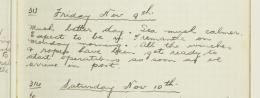 Friday Nov 9th.
Much better day. Sea much calmer.
Expect to be at Fremantle on
Monday morning. All the winches
& ropes have been got ready to
start operations so soon as we
arrive in port.
Saturday Nov 10th.